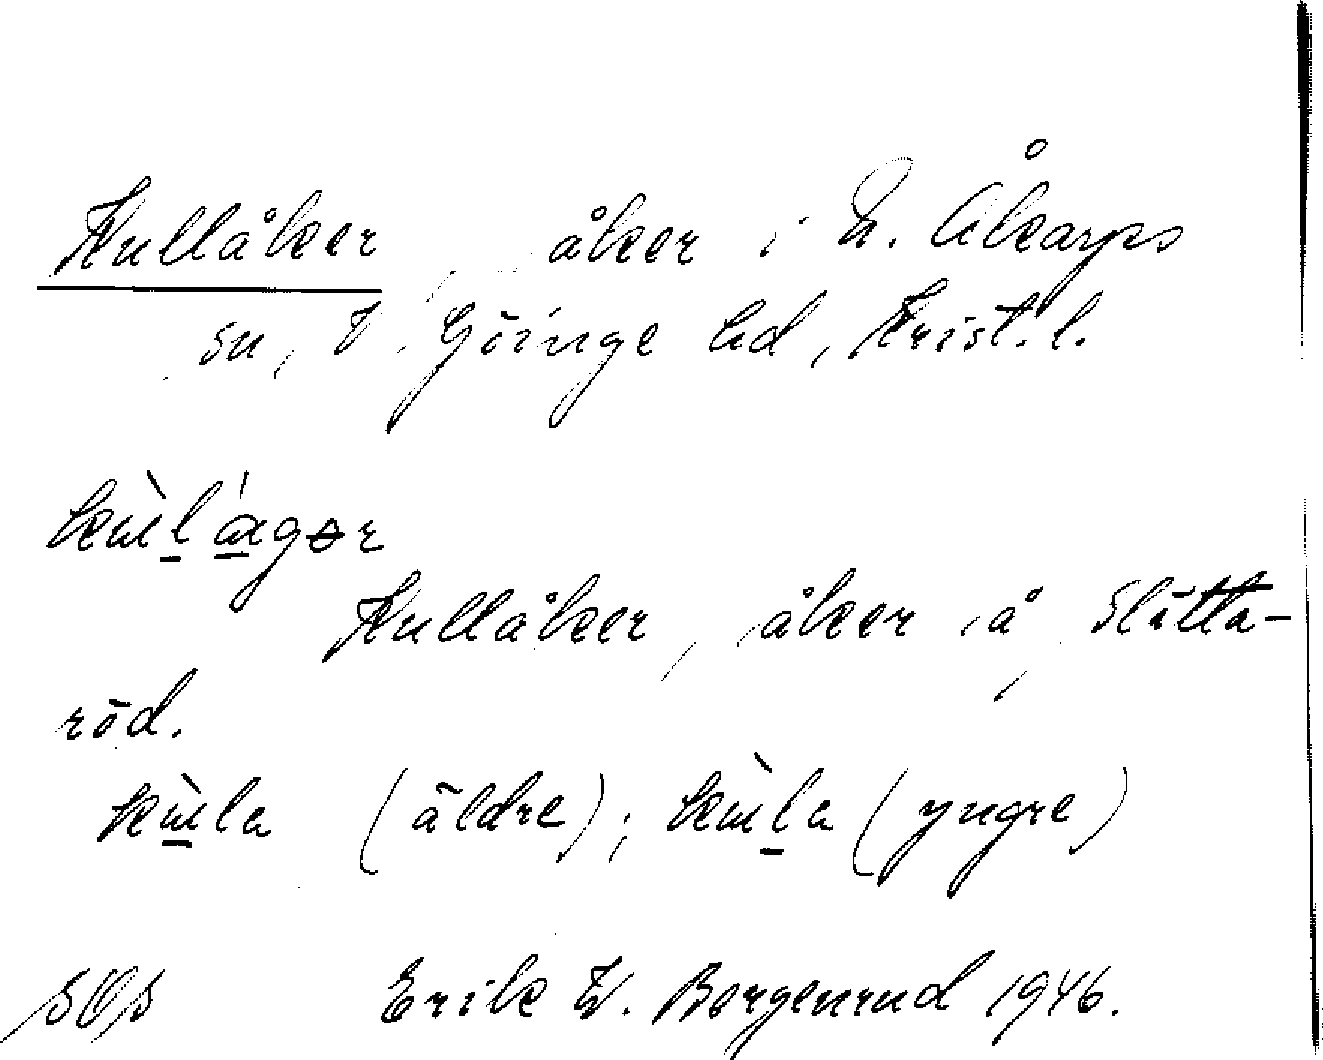 Kullåker, åker i N. Åkarps
sn, V. Göinge hd, Krist. l.
kùlágər
Kullåker, åker å Slätta-
röd.
kùla (äldre); kùla (yngre)
Erik W. Borgenrud 1946.